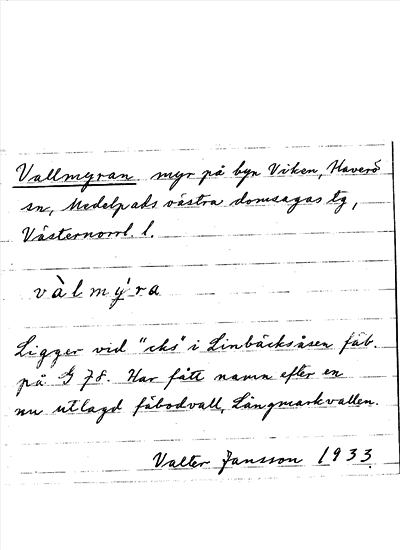 Vallmyran myr på byn Viken, Haverö
sn, Medelpads västra domsagas tg,
Västernorrl. l.
vàlmýra
Ligger vid "cks" i Linbäcksåsen fäb.
på G 78. Har fått namn efter en
nu utlagd fäbodvall, Långmarkvallen.
Valter Jansson 1933.